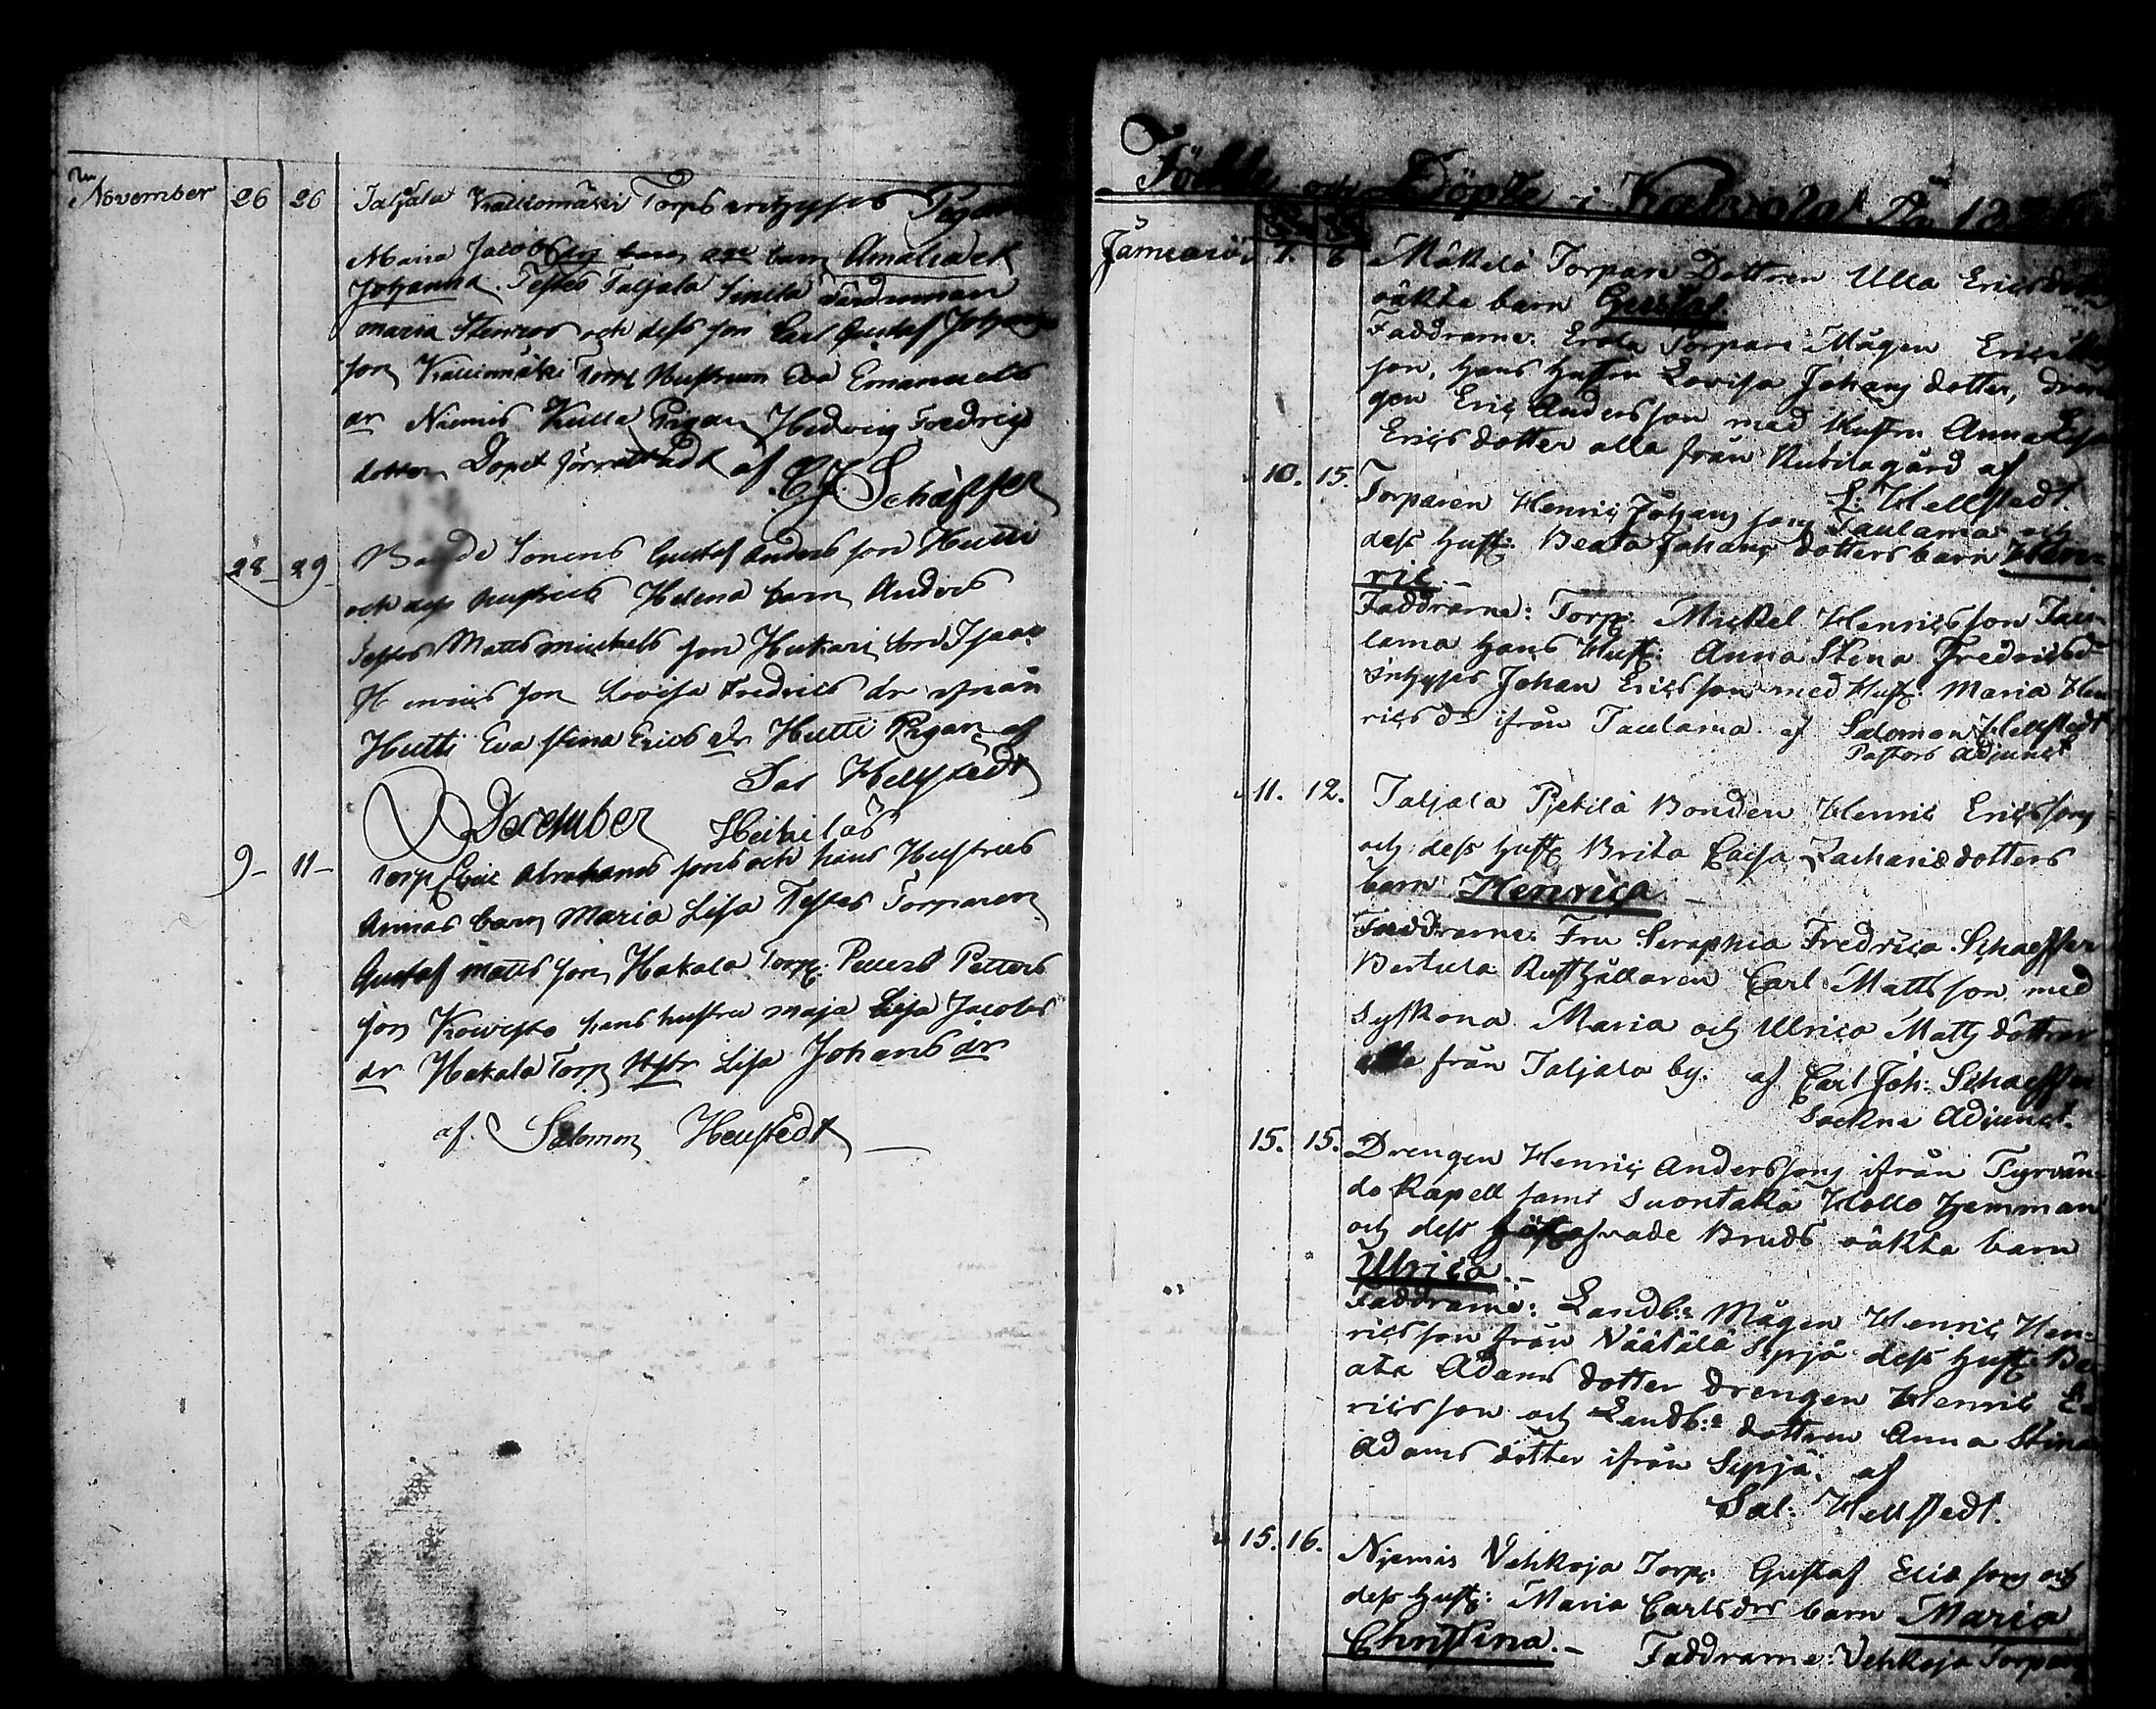 November 26 26 Taljala Kalliomäki Torps inhyses Pigan
Maria Jacobs dr barn Amalia ek
Johanna. Testes Taljala Simila
Maria Stenroos och dess son Carl Gustaf Johans
son, Kalliomäki Torp Hustrun Eva Emanuels
dr Niemis Kulla Pigan Hedvig Fredrigs
dotter Dopet förrättadt af
C J Schæffer
28 29 Bonde Sonens Gustaf Anders son Hutti
och dess hustrus Helena barn Anders
Testes Matts Mickels son Hukari, Isaac
Henrics son Lovisa Fredrics dr ifrån
Hutti Eva Stina Erics dr Hutti Pigan af
Sal Hellstedt
December Heikilas
9 11 Torp Eric Abrahams sons och hans Hustrus
Annas barn Maria Lisa Testes Torparen
Gustaf Matts son, Hakala Torp: Petter Petters
son Kowisto hans hustru Maja Lisa Jacobs
dr Hakala Torp Hstr Lisa Johans dr
af. Salomon Hellstedt
Födde och Döpte i Kalvola År 182
Januari 1. 6 Mäkelä Torpare Dottren Ulla Ericsdotters
oäkta barn Gustaf.
Faddrarne: Erola Torpare Mågen Eric
son, hans hustru Lovisa Johans dotter, dren
gen Eric Andersson med Hustru Anna Lisa
Ericsdotter alla från Nubilagård af
S: Hellstedt.
10. 15. Torparen Henric Johans sons Taulama och
dess hust: Beata Johans dotters barn Hen-
ric.
Faddrarne: Torp: Mickel Henricsson Tau-
lama hans Hust: Anna Stina Fredricsdr
Inhyses Johan Ericsson med Hust: Maria Hen
rics dr ifrån Taulama. af Salomon Hellstedt
Pastors Adjunct
11. 12. Taljala Pjetilä Bonden Henric Ericssons
och dess hust: Brita Caisa Zacharidotters
barn Henrica
Faddrarne: Fru Seraphia Fredrica Schaeffer
Bertula Rusthållaren Carl Mattsson med
Syskona Maria och Ulrica Matts döttrar
alla från Taljala by. af Carl Joh: Schaeffer
Sockne Adjunct.
15. 15. Drengen Henric Anderssons ifrån Tyrvän-
do Kapell samt Suontaka Hollo Hemman
och dess Bruds oäkta barn
Ulrica.
Faddrarne: Landb:e Mågen Henric Hen-
ricsson från Näätälä Syrjä dess hust: Be-
ata Adams dotter Drengen Henric E-
ricsson och Landb:e dottren Anna Stina
Adams dotter ifrån Syrjä. af
Sal: Hellstedt.
15. 16. Njemis Vehkoja Torp: Gustaf Erics sons och
dess hust: Maria Carlsdrs barn Maria
Christina. Faddrarne: Vehkoja Torparen